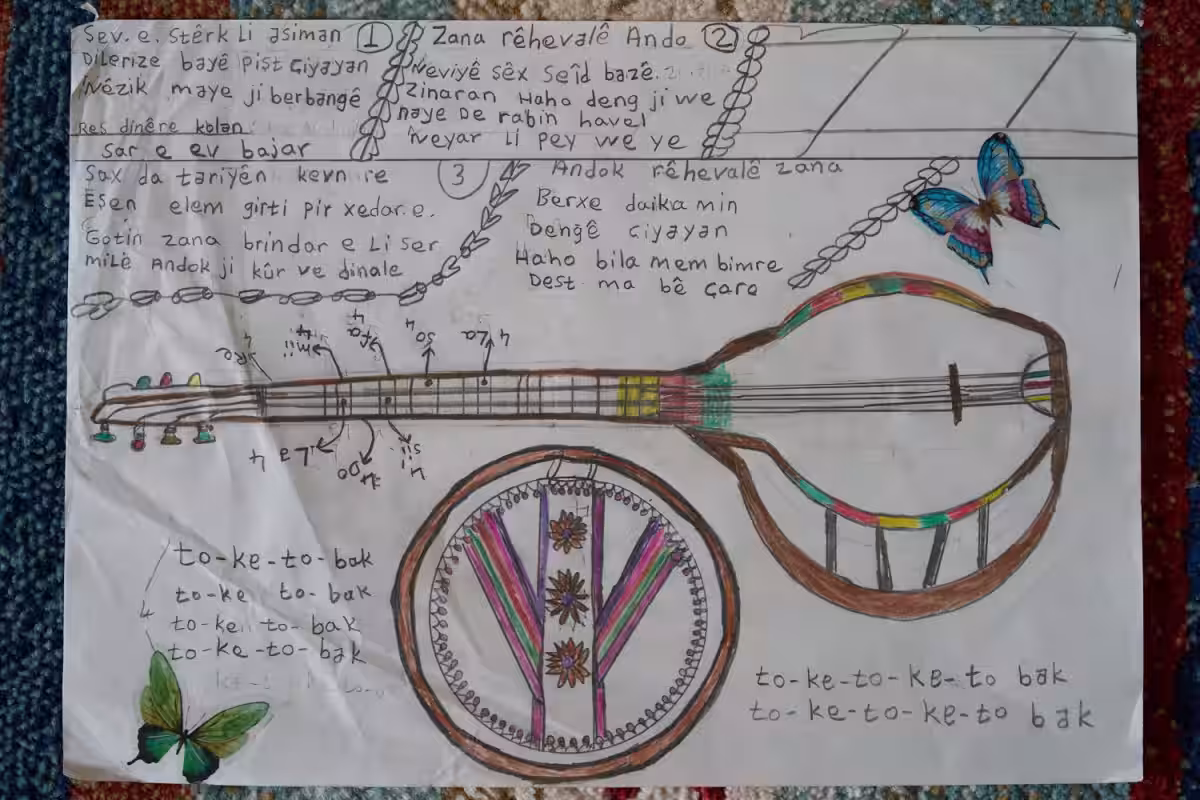 Sev. e. Stêrk Li asiman 1
Dilerize bayê Pist Çiyayan
Nêzik maye ji berbangê
Res dinêre kolan
Sar e ev bajar
Zana rêhevalê Ando 2
Neviyê sêx Seîd bazê.
Zinaran Haho deng ji we
naye De rabin havel
Neyar Li pey we ye
Sax da tariyên kevn re 3
Eşen elem girti pir xedar.e.
Gotin zana brindar e Li ser
milê Andok ji kûr ve dinale
Andok rêhevalê zana
Berxe daika min
Dengê ciyayan
Haho bila mem bimre
Dest ma bê çara
4 Re
4 mii
4 fa
4 so
4 La
La 4
4 Do
4 sii
to-ke-to-bak
to-ke to-bak
4
to-ke to-bak
to-ke-to-bak
to-ke-to-ke-to bak
to-ke-to-ke-to bak